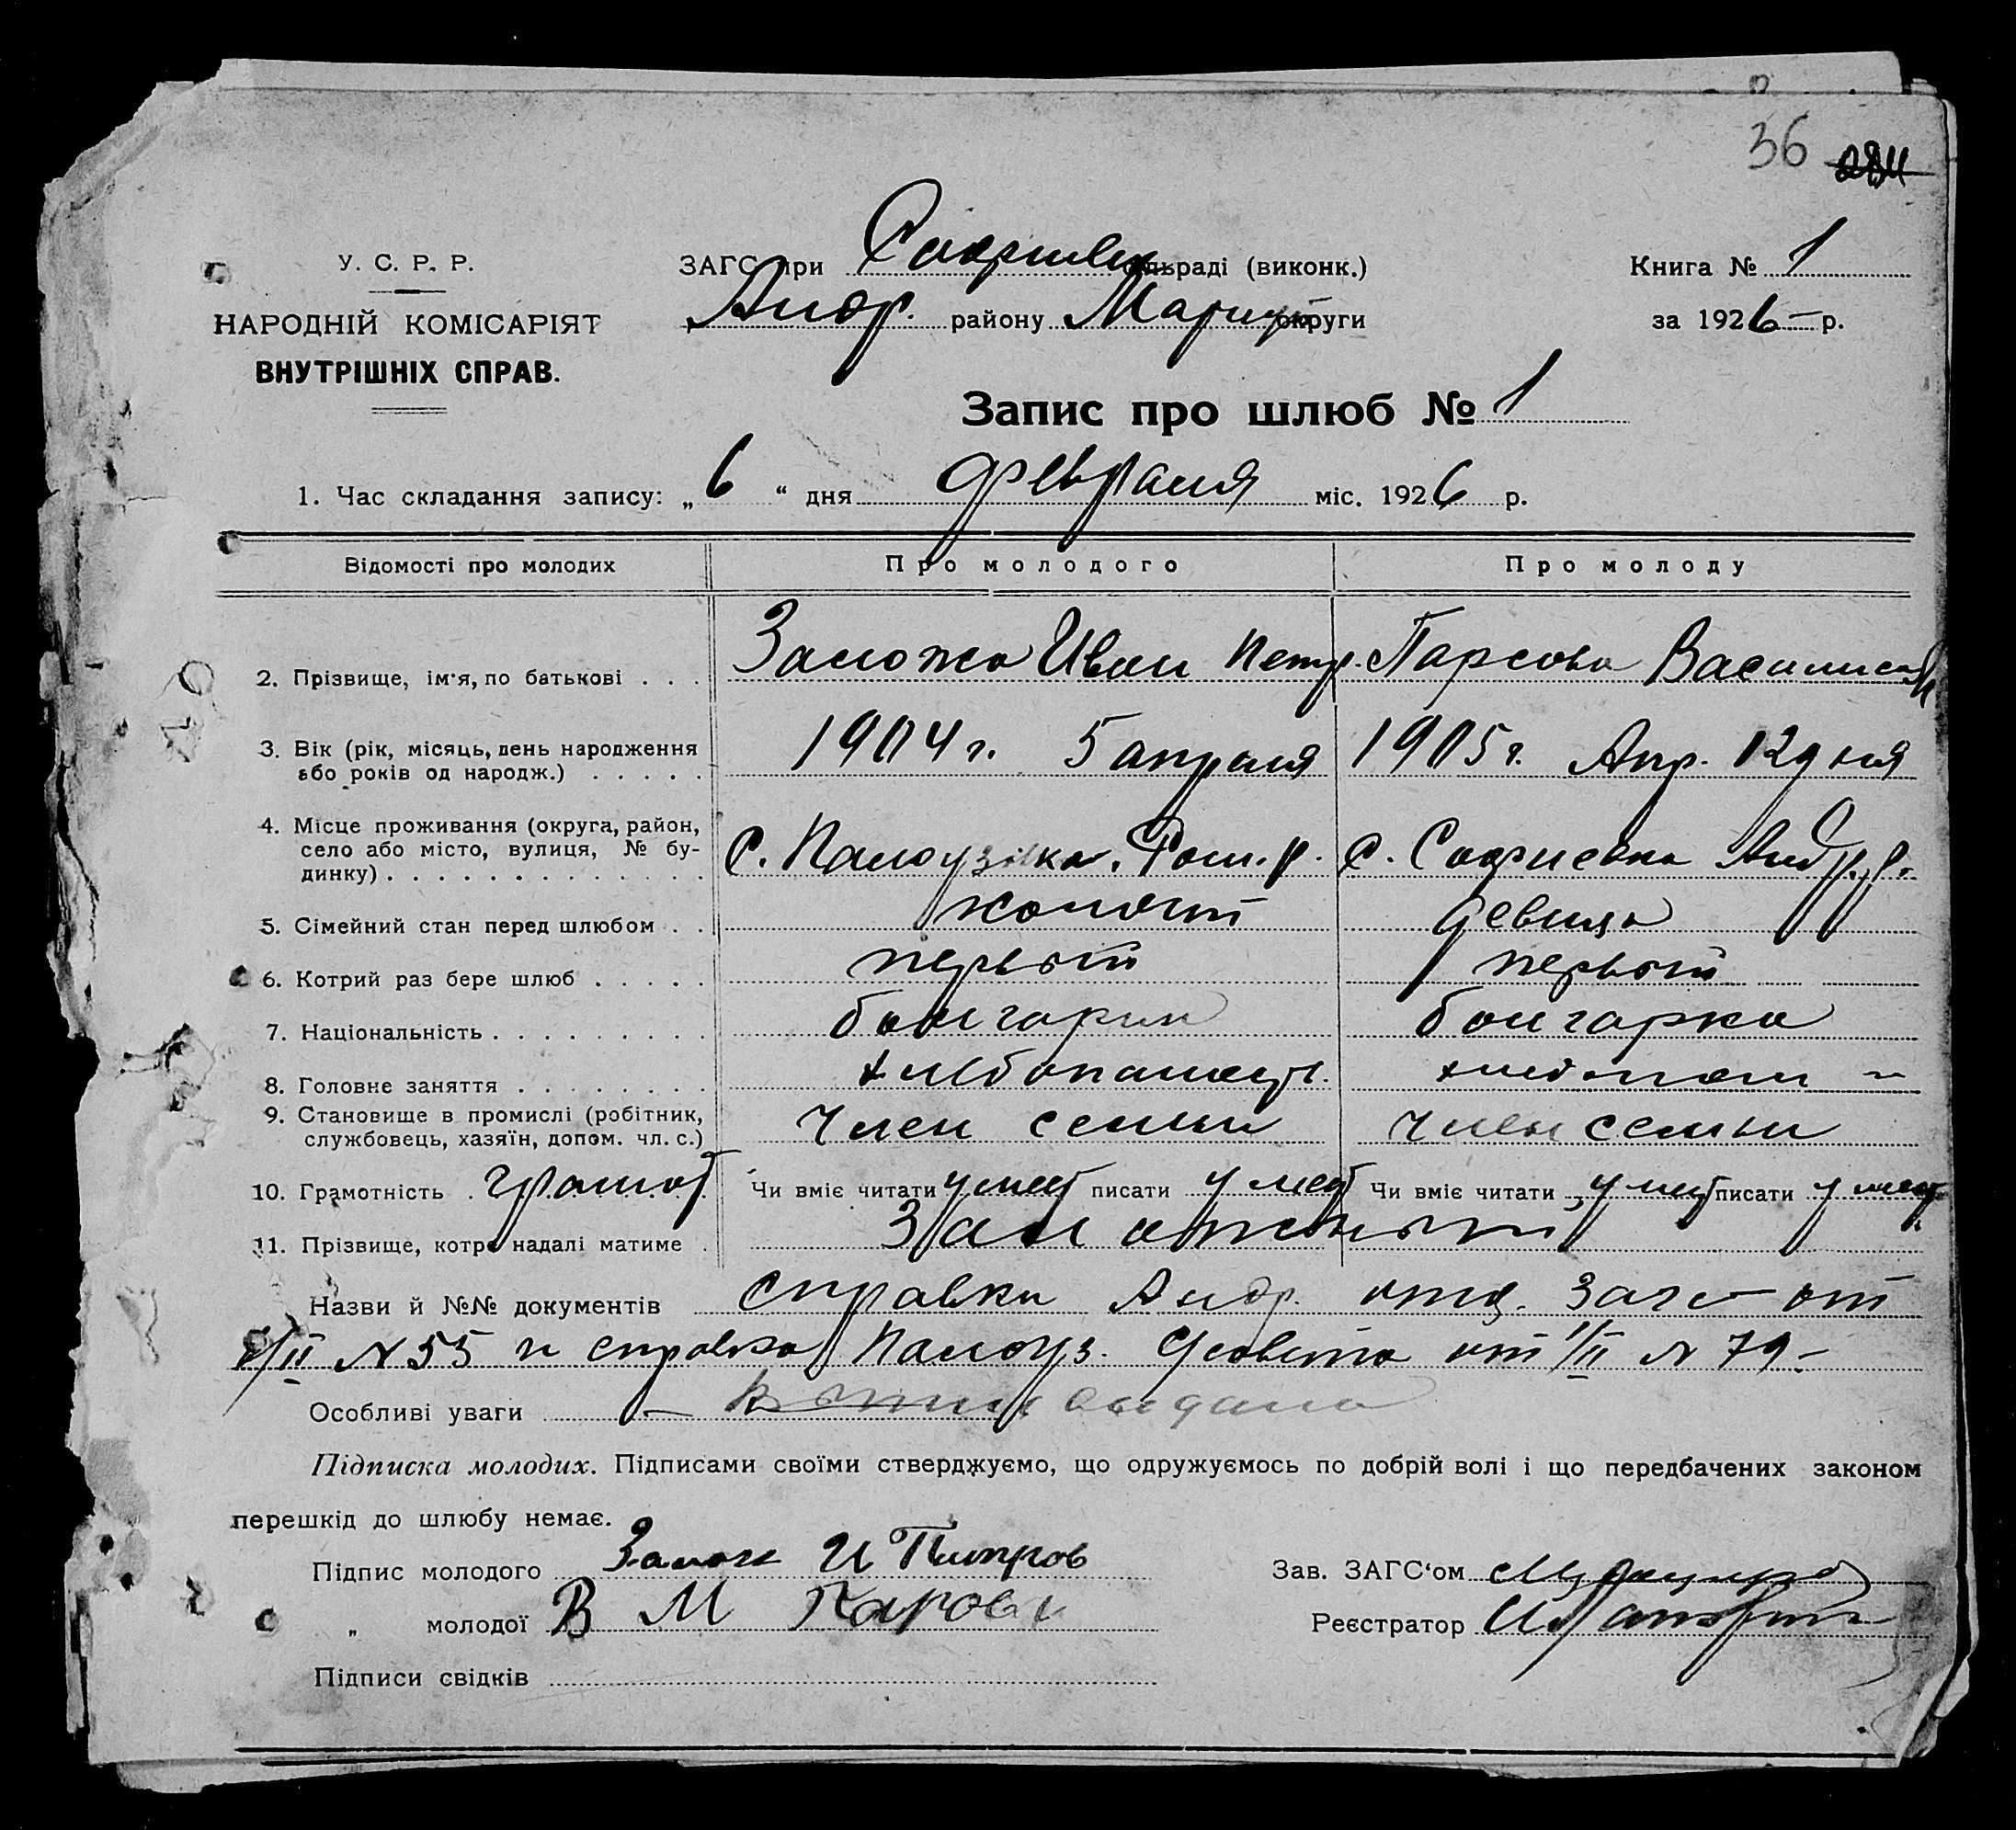 36
У. С. Р. Р.
НАРОДНІЙ КОМІСАРІЯТ
ВНУТРІШНІХ СПРАВ.
ЗАГС при раді (виконк.)
Андр. району Мариуп округи
Книга № 1
за 1926 р.
Запис про шлюб № 1
1. Час складання запису: „6“ дня февраля міс. 1926 р.
Відомості про молодих Про молодого Про молоду
2. Прізвище, ім'я, по батькові . . . Иван Петр. Василиса
3. Вік (рік, місяць, день народження
або років од народж.) . . . . . 1904 г. 5 апреля 1905 г. Апр. 12 дня
4. Місце проживання (округа, район,
село або місто, вулиця, № бу-
динку) . . . . . . . . . . . . . с. с. Софиевка Андр. р.
5. Сімейний стан перед шлюбом . . холост девица
6. Котрий раз бере шлюб . . . . . первый первый
7. Національність . . . . . . . . . болгарин болгарка
8. Головне заняття . . . . . . . . хлебопашец. хлебопаш
9. Становище в промислі (робітник,
службовець, хазяїн, допом. чл. с.) Член семьи Член семьи
10. Грамотність . грамот Чи вміє читати умеет писати умеет Чи вміє читати умеет писати умеет
11. Прізвище, котре надалі матиме .
Назви й №№ документів справки Андр. отд. Загс от
/II N 55 и справка Совета от 1/II N 79 –
Особливі уваги – выдана
Підписка молодих. Підписами своїми стверджуємо, що одружуємось по добрій волі і що передбачених законом
перешкід до шлюбу немає.
Підпис молодого И
Зав. ЗАГС'ом
„ молодої В М
Реєстратор
Підписи свідків